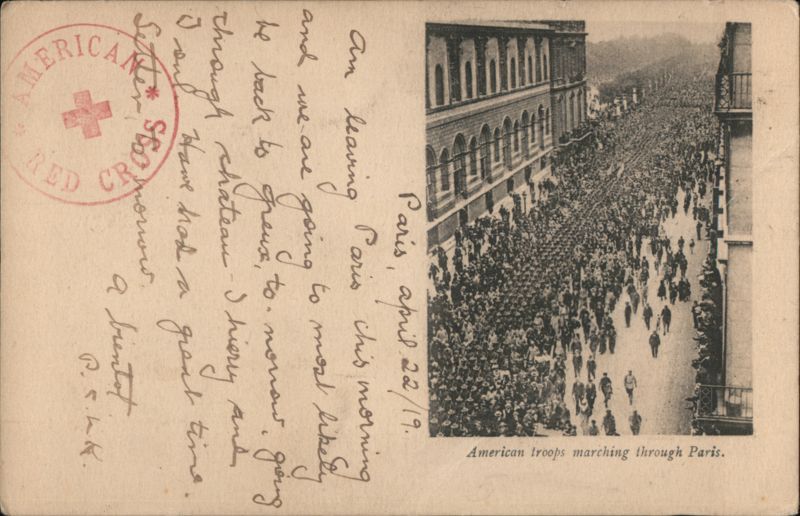 AMERICAN * RED CROSS *
Paris, april 22/19.
Am leaving Paris this morning
and we are going to most likely
be back to Greux, to-morrow, going
through chateau-Thierry and
Have had a great time.
Letter to morrow.
A bientot
American troops marching through Paris.